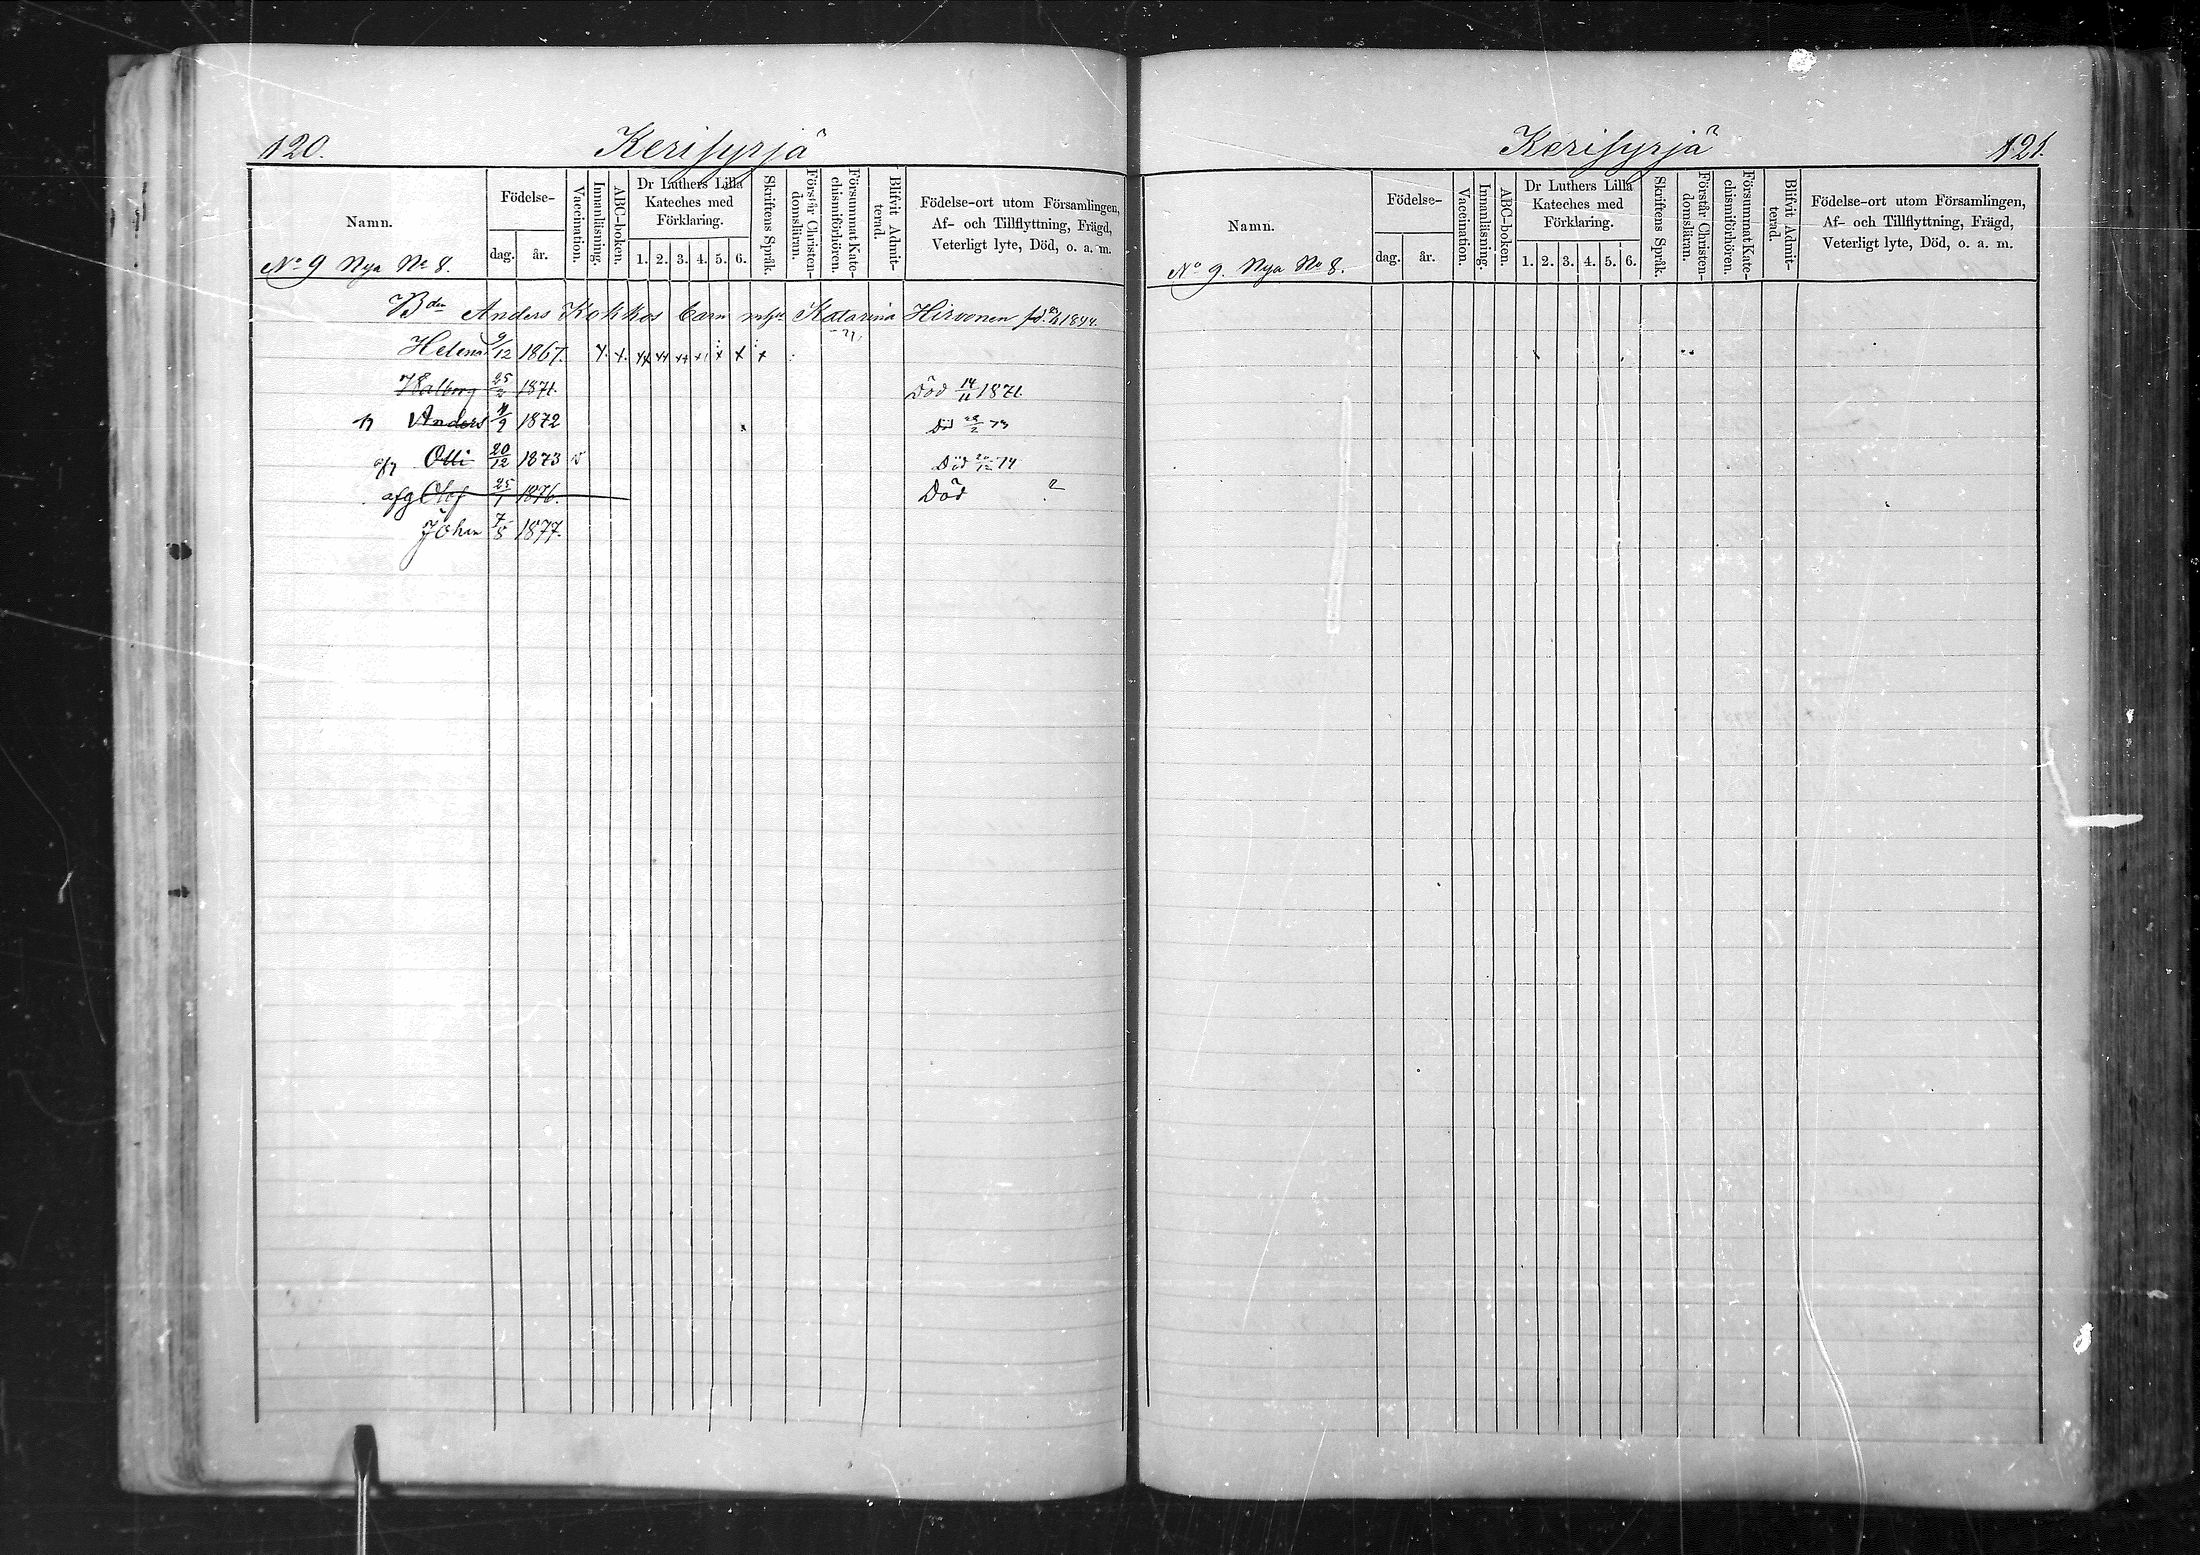 120. Kerisyrjä
Namn. Födelse- Vaccination. Innanläsning. ABC-boken. Dr Luthers Lilla Kateches med Förklaring. Skriftens Språk. Förstår Christendomsläran. Försummat Katechismiförhören. Blifvit Admitterad. Födelse-ort utom Församlingen, Af- och Tillflyttning, Frägd, Veterligt lyte, Död, o. a. m.
dag. år. 1. 2. 3. 4. 5. 6.
No 9 Nya No 8.
Bden Anders Kokkos barn m hu Katarina Hirvonen fd. 1844.
Helena 9/12 1867.
Walborg 25/2 1871. Död 14/11 1871.
Anders 11/9 1872 Död 28/2 73
Olli 20/12 1873 v Död 20/12 74
afg Olof 25/1 1876. Död
Johan 7/8 1877.
Kerisyrjä 121.
Namn. Födelse- Vaccination. Innanläsning. ABC-boken. Dr Luthers Lilla Kateches med Förklaring. Skriftens Språk. Förstår Christendomsläran. Försummat Katechismiförhören. Blifvit Admitterad. Födelse-ort utom Församlingen, Af- och Tillflyttning, Frägd, Veterligt lyte, Död, o. a. m.
dag. år. 1. 2. 3. 4. 5. 6.
No 9. Nya No 8.